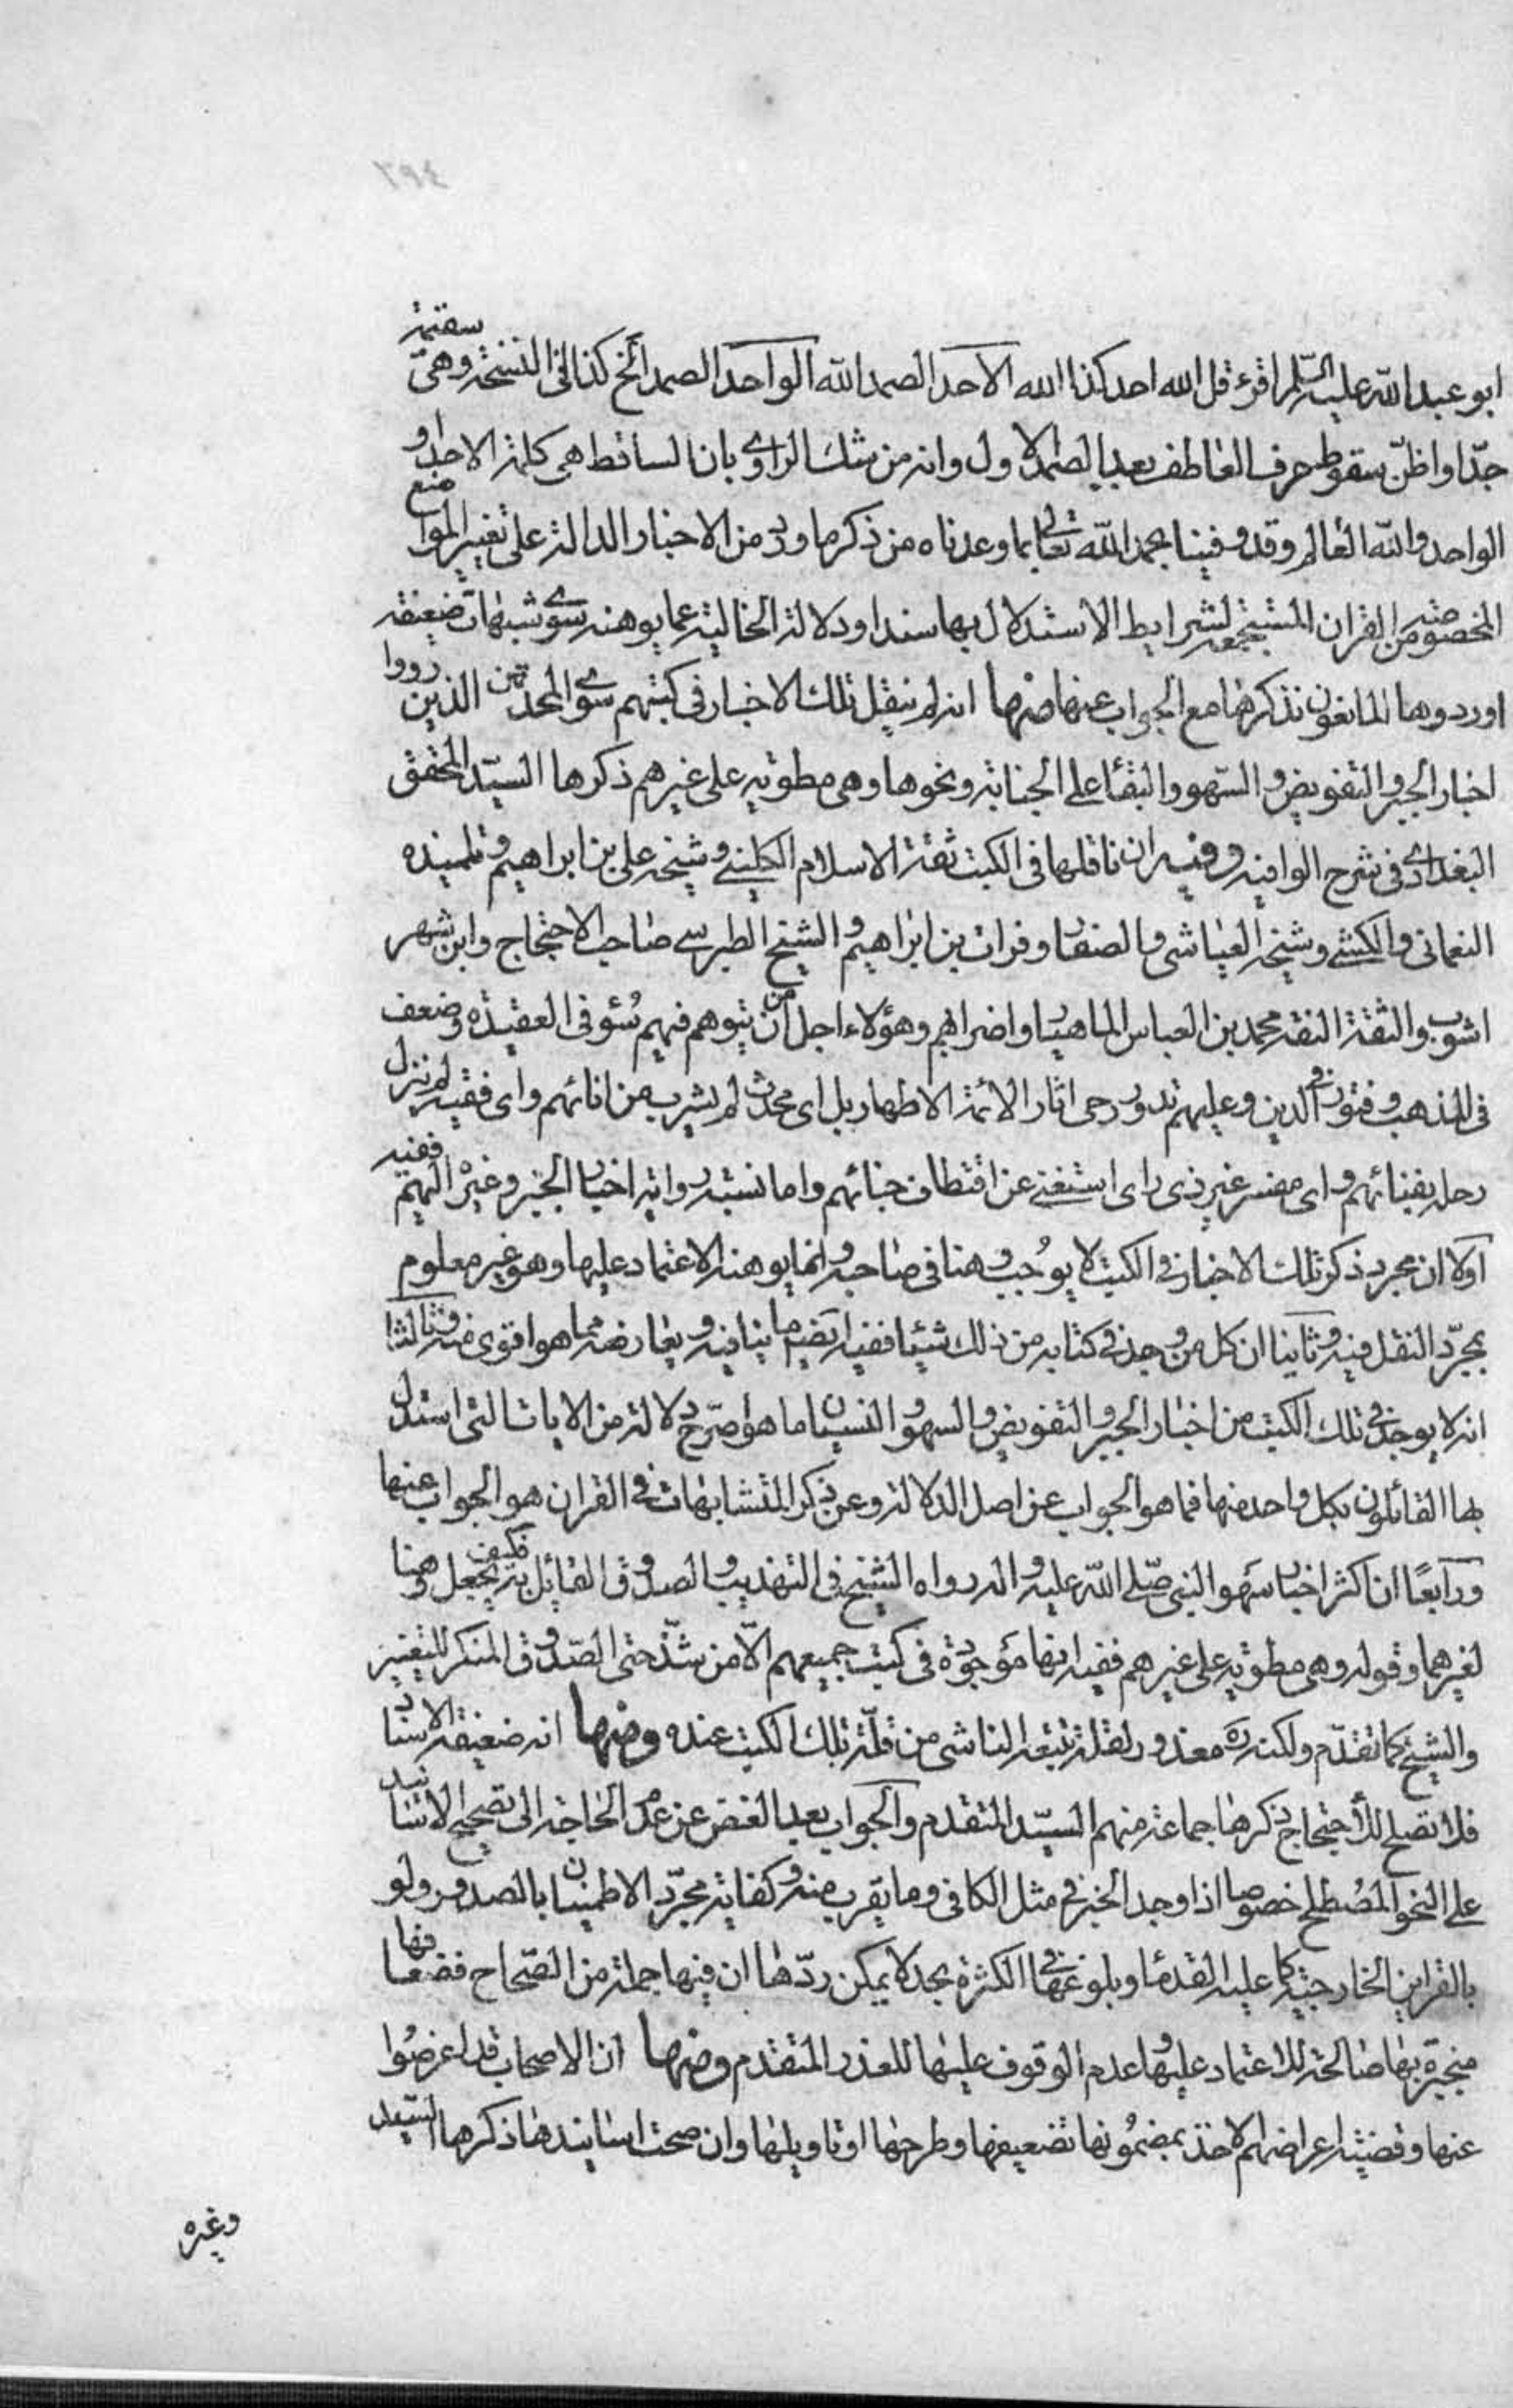 ابو عبد الله عليه السّلم اقرء قل الله احد كذا الله الاحد الصمد الله الواحد الصمد الخ كذا فى النسخة وهى سقيمة
جدّا واظنّ سقوط حرف العاطف بعد الصمد الاول وانه من شك الراوى بان الساقط هى كلمة الاحد او
الواحد والله العالم وقد وفينا بحمد الله تعالى بما وعدناه من ذكر ما ورد من الاخبار الدالة على تغيير المواضع
المخصوصة من القران المستجمعة لشرايط الاستدلال بها سندا ودلالة الخالية عما يوهنه سوى شبهات ضعيفة
اوردوها المانعون نذكرها مع الجواب عنها منها انه لم ينقل تلك الاخبار فى كتبهم سوى المحدثين الذين رووا
اخبار الجبر والتفويض والسّهو والبقاء على الجنابة ونحوها وهى مطوية على غيرهم ذكرها السيّد المحقق
البغدادى فى شرح الوافيه وفيه ان ناقلها فى الكتب ثقة الاسلام الكلينى وشيخه على بن ابراهيم وتلميذه
النعمانى والكشى وشيخه العياشى والصفار وفرات بن ابراهيم والشيخ الطبرسى صاحب الاحتجاج وابن شهر
اشوب والثقة النقة محمد بن العباس الماهيار واضرابهم وهؤلاء اجل من ان يتوهم فيهم سُوء فى العقيدة وضعف
فى المذهب وفتور فى الدين وعليهم تدور رحى اثار الائمة الاطهار بل اى محدث لم يشرب من انائهم واى فقيه لم ينزل
رحله بفنائهم واى مفسر غير ذى راى استغنى عن اقتطاف جنائهم واما نسبة رواية اخبار الجبر وغيره اليهم ففيه
اولا ان مجرد ذكر تلك الاخبار فى الكتب لا يوُجب وهنا فى صاحبه وانما يوهنه الاعتماد عليها وهو غير معلوم
بمجرّد النقل فيه وثانيا ان كل من وجد فى كتابه من ذلك شيئا ففيه ايضا ما ينافيه ويعارضه مما هو اقوى منه وثالثا
انه لا يوجد فى تلك الكتب من اخبار الجبر والتفويض والسهو والنسيان ما هو اصرّح دلالة من الايات التى استدل
بها القائلون بكل واحد منها فما هو الجواب عن اصل الدلالة وعن ذكر المتشابهات فى القران هو الجواب عنها
ورابعًا ان اكثر اخبار سهو النبى صّلى الله عليه واله رواه الشيخ فى التهذيب والصدوق القائل به فكيف يجعل وهنا
لغيرهما وقوله وهى مطوية على غيرهم ففيه انها مَوجودة فى كتب جميعهم الاّ من شذّ حتى الصّدوق المنكر للتغيير
والشيخ كما تقدّم ولكنه رَه معذور لقلة تتبعه الناشى من قلّة تلك الكتب عنده ومنها انه ضعيفة الاسناد
فلا تصلح للاحتجاج ذكرها جماعة منهم السيّد المتقدم والجواب بعد الغض عن عدم الحاجة الى تصحيح الاسانيد
على النحو المصُطلح خصوصا اذا وجد الخبر فى مثل الكافى وما يقرب منه وكفاية مجرّد الاطمينان بالصدور ولو
بالقراين الخارجية كما عليه القدماء وبلوغها فى الكثرة بحد لا يمكن ردّها ان فيها جملة من الصّحاح فضعافها
منجبرة بها صالحة للاعتماد عليها وعدم الوقوف عليها للعذر المتقدم ومنها ان الاصحاب قد اعرضُوا
عنها وقضية اعراضهم لاخذ بمضمُونها تضعيفها وطرحها او تاويلها وان صحت اسانيدها ذكرها السّيد
وغيره